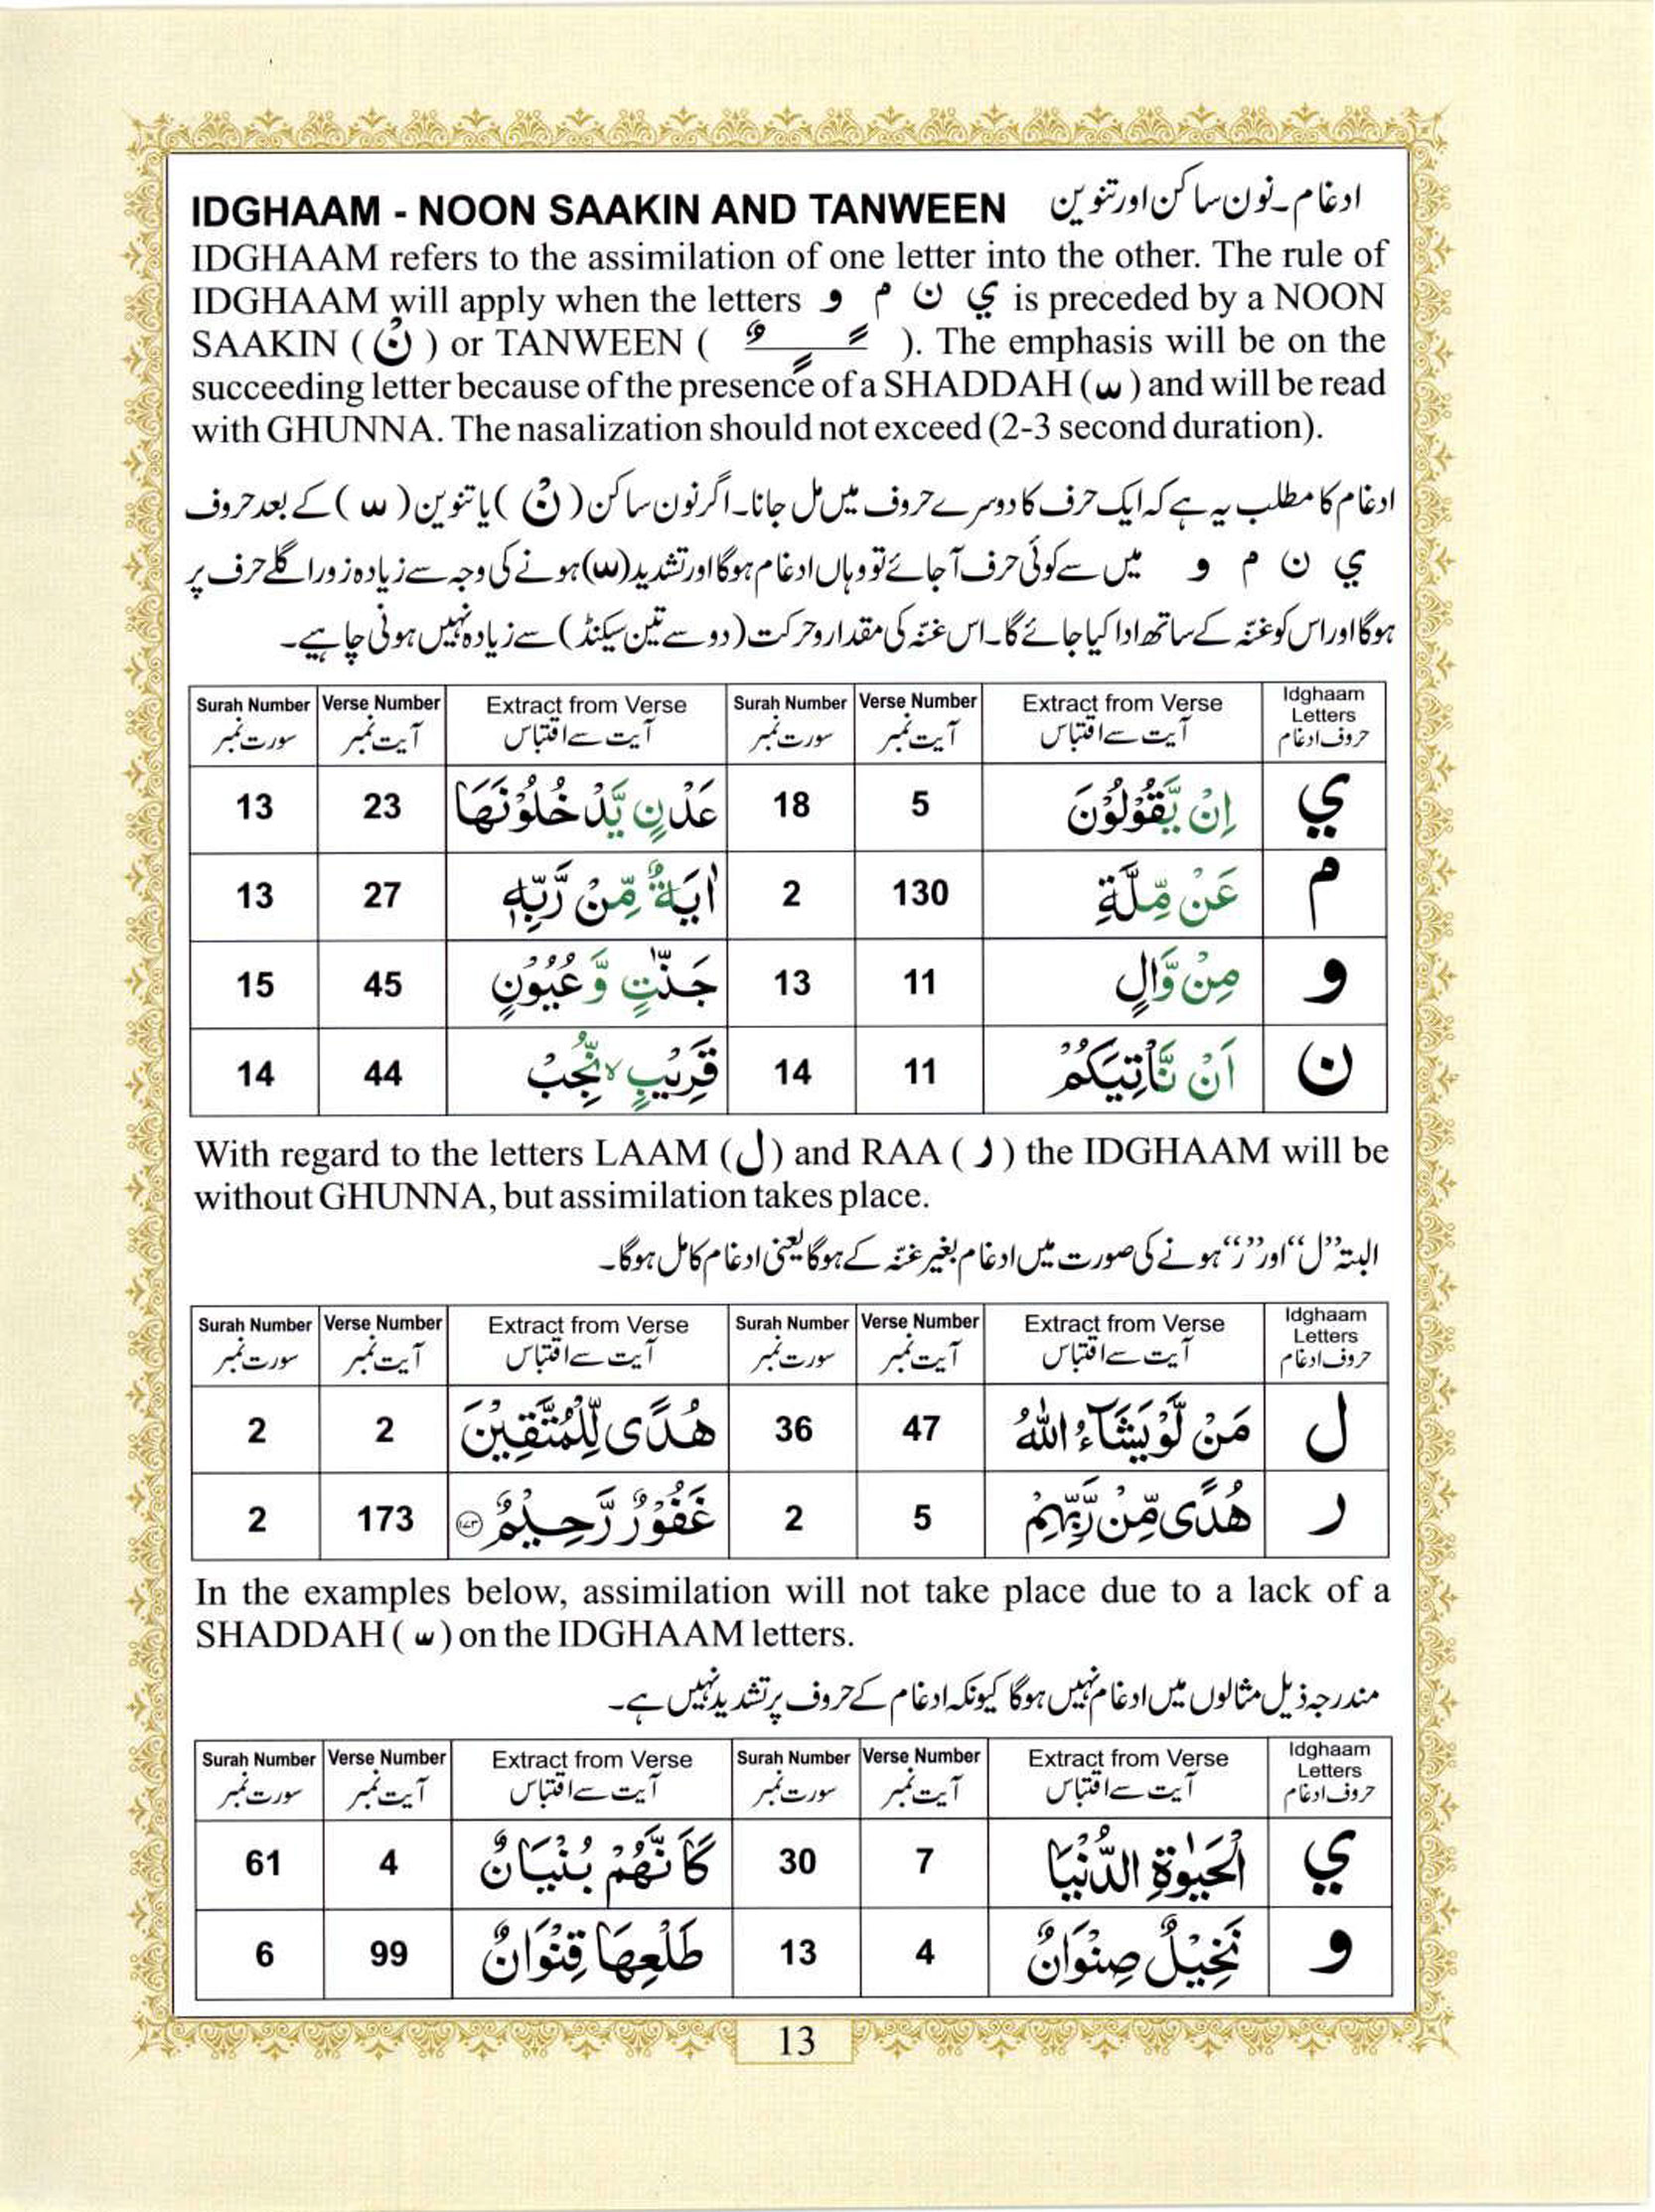 IDGHAAM - NOON SAAKIN AND TANWEEN ادغام۔نون ساکن اور تنوین
IDGHAAM refers to the assimilation of one letter into the other. The rule of
IDGHAAM will apply when the letters ي ن م و is preceded by a NOON
SAAKIN ( نْ ) or TANWEEN ( ـًـٍـٌ ). The emphasis will be on the
succeeding letter because of the presence of a SHADDAH ( ّ ) and will be read
with GHUNNA. The nasalization should not exceed (2-3 second duration).
ادغام کا مطلب یہ ہے کہ ایک حرف کا دوسرے حروف میں مل جانا۔اگر نون ساکن (نْ) یا تنوین ( ّ ) کے بعد حروف
ي ن م و میں سے کوئی حرف آجائے تو وہاں ادغام ہوگا اور تشدید( ّ )ہونے کی وجہ سے زیادہ زور اگلے حرف پر
ہوگا اور اس کو غنّہ کے ساتھ ادا کیا جائے گا۔اس غنّہ کی مقدار و حرکت (دو سے تین سیکنڈ) سے زیادہ نہیں ہونی چاہیے۔
Surah Number Verse Number Extract from Verse Surah Number Verse Number Extract from Verse Idghaam Letters
سورت نمبر آیت نمبر آیت سے اقتباس سورت نمبر آیت نمبر آیت سے اقتباس حروف ادغام
13 23 عَدْنٍ يَّدْخُلُوْنَهَا 18 5 اِنْ يَّقُوْلُوْنَ ي
13 27 اٰيَةٌ مِّنْ رَّبِّهٖ 2 130 عَنْ مِّلَّةِ م
15 45 جَنّٰتٍ وَّعُيُوْنٍ 13 11 مِنْ وَّالٍ و
14 44 قَرِيْبٍ ۙ نُّجِبْ 14 11 اَنْ نَّاْتِيَكُمْ ن
With regard to the letters LAAM (ل) and RAA (ر) the IDGHAAM will be
without GHUNNA, but assimilation takes place.
البتہ ”ل“ اور ”ر“ ہونے کی صورت میں ادغام بغیر غنّہ کے ہوگا یعنی ادغام کامل ہوگا۔
Surah Number Verse Number Extract from Verse Surah Number Verse Number Extract from Verse Idghaam Letters
سورت نمبر آیت نمبر آیت سے اقتباس سورت نمبر آیت نمبر آیت سے اقتباس حروف ادغام
2 2 هُدًى لِّلْمُتَّقِيْنَ 36 47 مَنْ لَّوْ يَشَآءُ اللّٰهُ ل
2 173 غَفُوْرٌ رَّحِيْمٌ ۝١٧٣ 2 5 هُدًى مِّنْ رَّبِّهِمْ ر
In the examples below, assimilation will not take place due to a lack of a
SHADDAH ( ّ ) on the IDGHAAM letters.
مندرجہ ذیل مثالوں میں ادغام نہیں ہوگا کیونکہ ادغام کے حروف پر تشدید نہیں ہے۔
Surah Number Verse Number Extract from Verse Surah Number Verse Number Extract from Verse Idghaam Letters
سورت نمبر آیت نمبر آیت سے اقتباس سورت نمبر آیت نمبر آیت سے اقتباس حروف ادغام
61 4 كَاَنَّهُمْ بُنْيَانٌ 30 7 الْحَيٰوةِ الدُّنْيَا ي
6 99 طَلْعِهَا قِنْوَانٌ 13 4 نَخِيْلٌ صِنْوَانٌ و
13